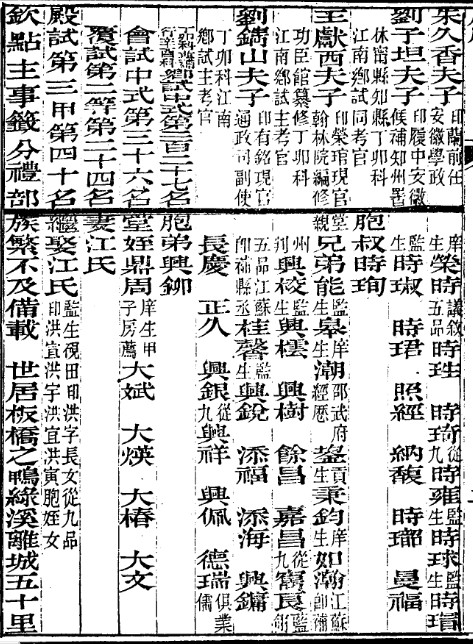 朱久香夫子 印蘭前任安徽學政
劉子坦夫子 印履中安徽候補知州署休甯縣知縣丁卯科江南鄉試同考官
王獻西夫子 印榮琯現官翰林院編修親功臣館纂修丁卯科江南鄉試主考官
劉鏞山夫子 印有銘現官通政司副使丁卯科江南鄉試主考官
鄉試中式第二百二十七名
會試中式第三十六名
覆試第二等第二十四名
殿試第三甲第四十名
欽點主事籤分禮部
庠生榮時 議敘五品時珄 時琦 從九時雍 監生時球 監生時瑁
監生時琡 時珺 照經 納馥 時瑯 曼福
胞叔時珣
堂兄弟能 監生皋 庠生潮 邵武府經歷鋆 貢生秉鈞 庠生如瀚 江蘇卽補
州判興校 監生興樰 興樹 餘昌 嘉昌 從九甯良 監
五品江蘇卽補縣丞桂馨 監生興銳 添福 添海 興鏞
長慶 正久 興銀 從九興祥 興佩 德瑞 俱業儒
胞弟興鉚
堂姪鼎周 庠生甲子房薦大斌 大煐 大椿 大文
妻江氏
繼娶江氏 監生視田印洪字長女從九品印洪宜洪宇洪宜洪寅胞姪女
族繁不及備載 世居板橋之鴨綠溪離城五十里